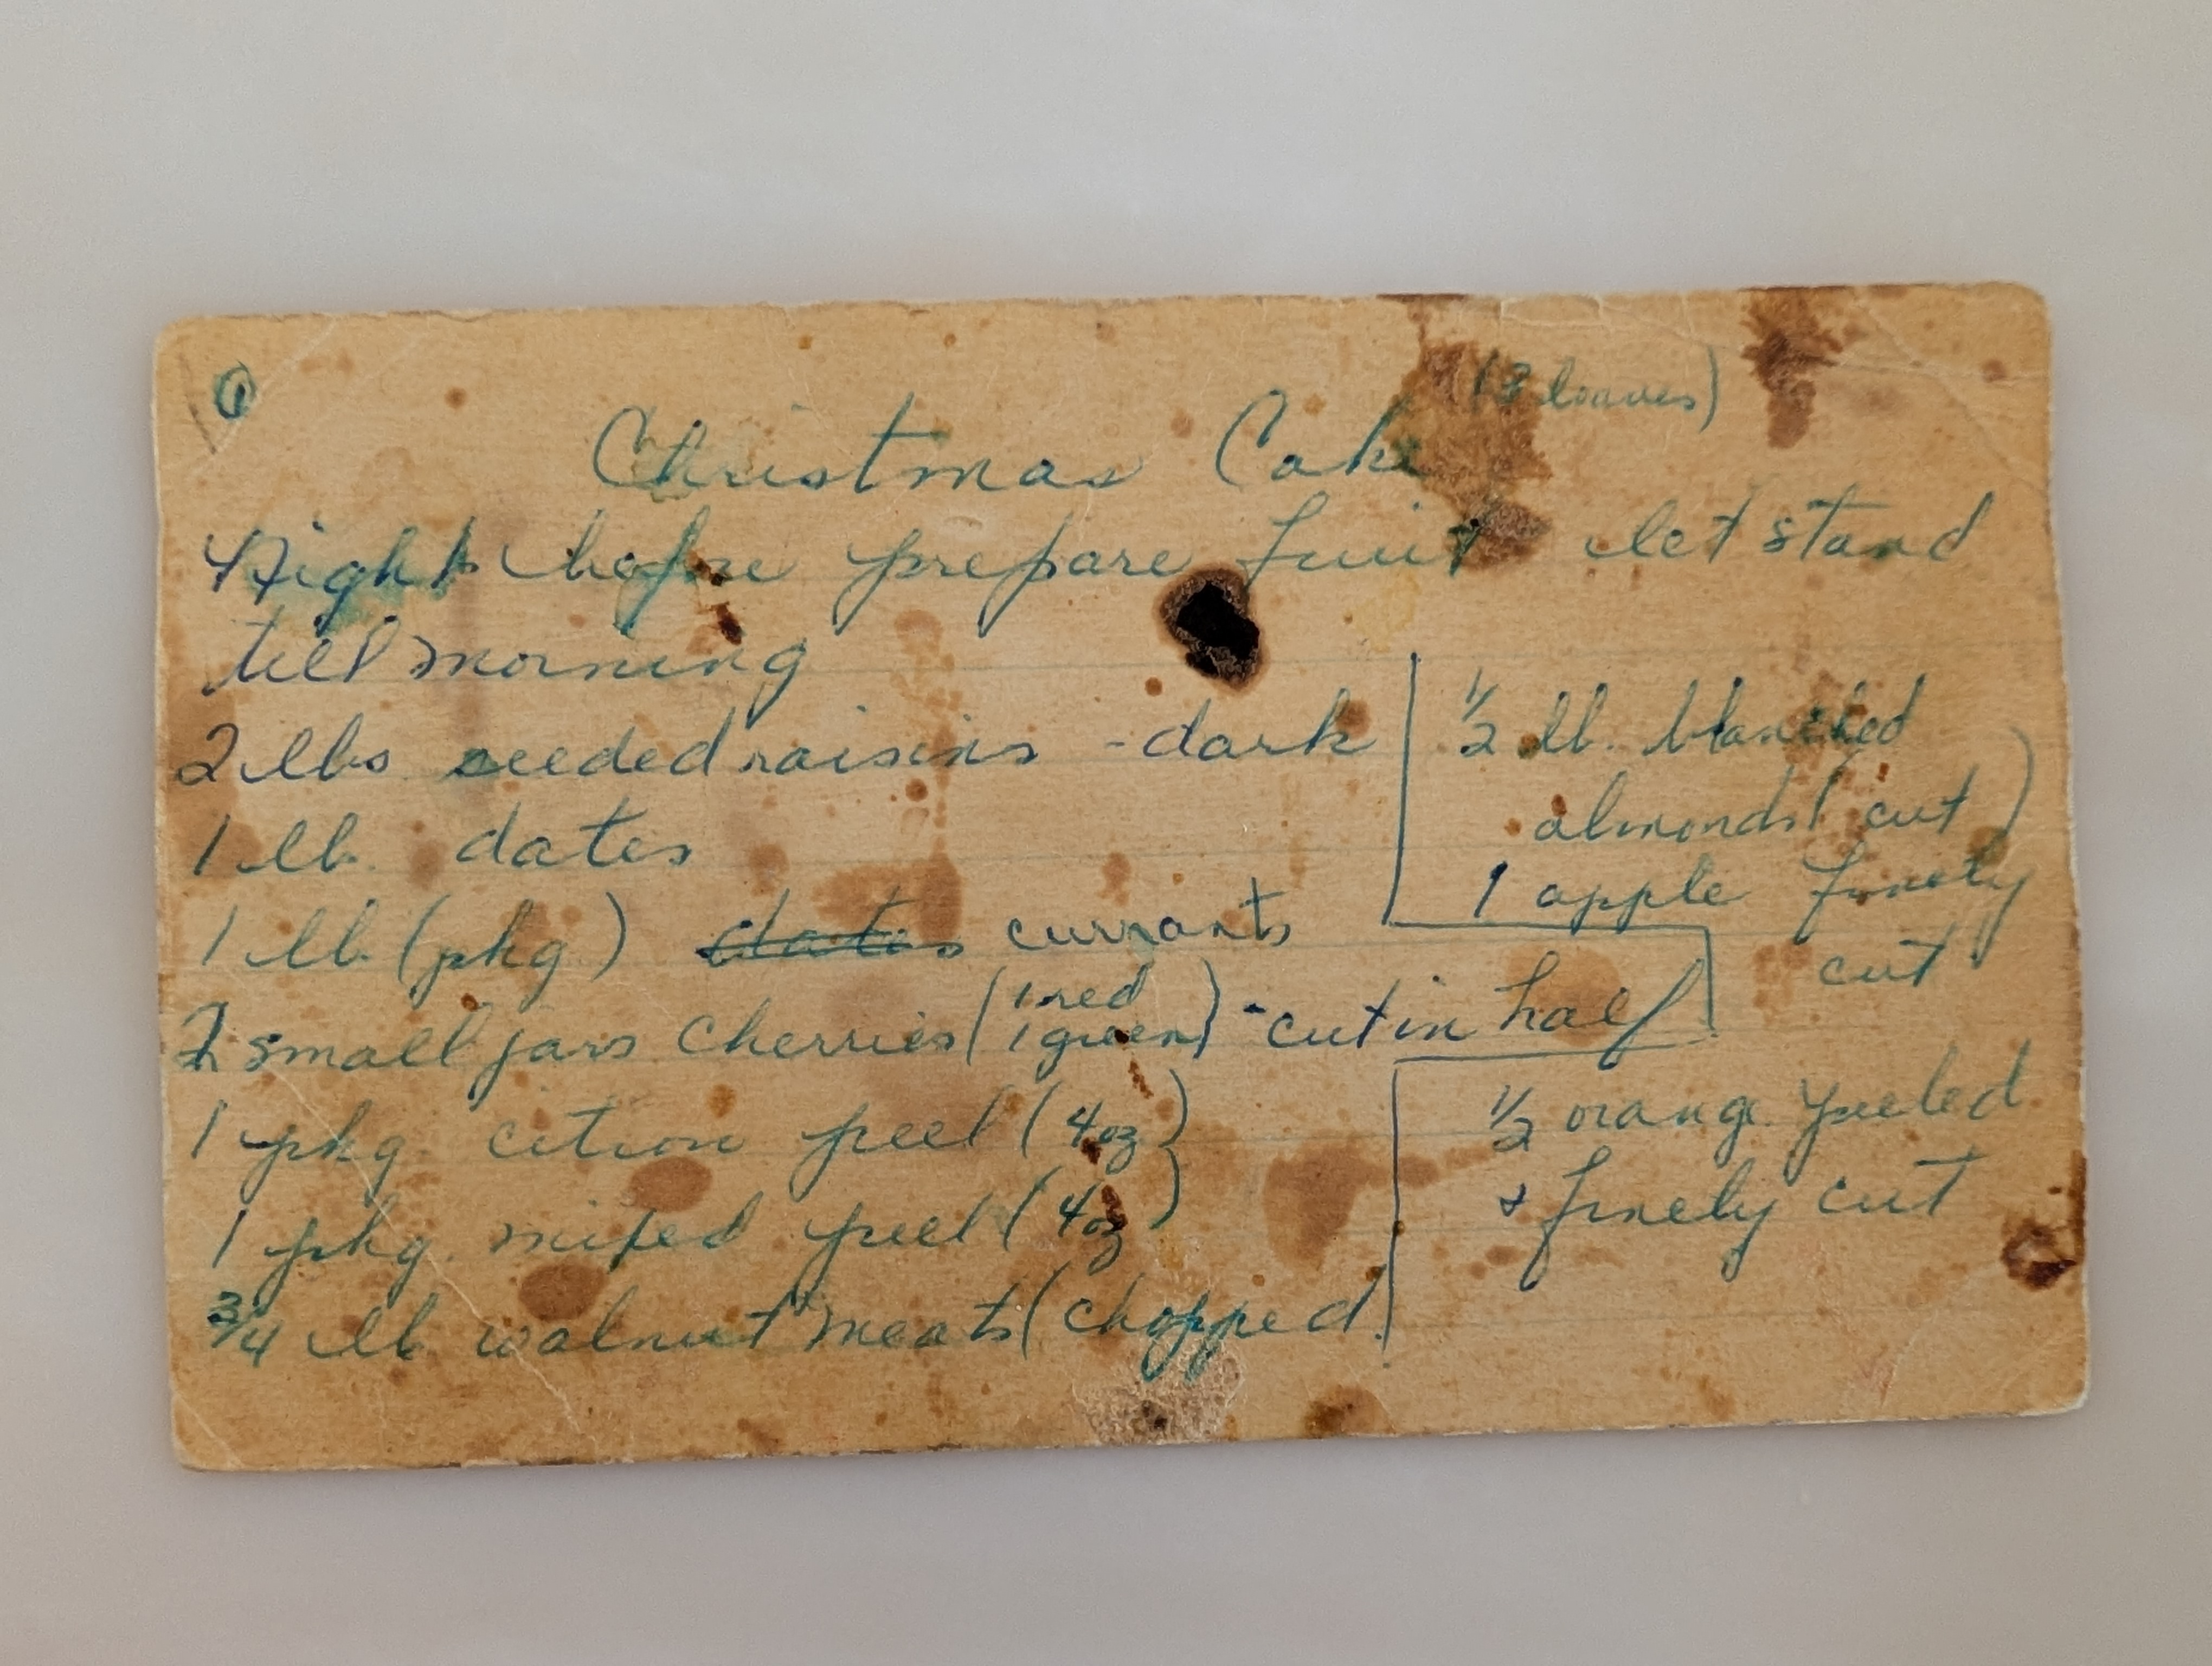 ①
(3 loaves)
Christmas Cake
Night before prepare fruit let stand
till morning
2 lbs seeded raisins - dark
1 lb. dates
1 lb. (pkg) dates currants
2 small jars cherries (1 red 1 green) - cut in half
1 pkg citron peel (4 oz)
1 pkg. mixed peel (4 oz)
3/4 lb walnut meats (chopped.
1/2 lb. blanched
almonds (cut)
1 apple finely
cut
1/2 orange peeled
+ finely cut